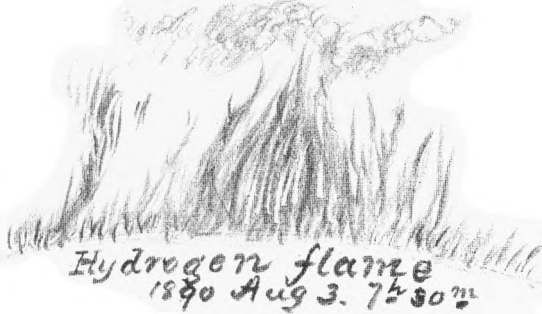 Hydrogen flame
1890 Aug 3. 7h 30m